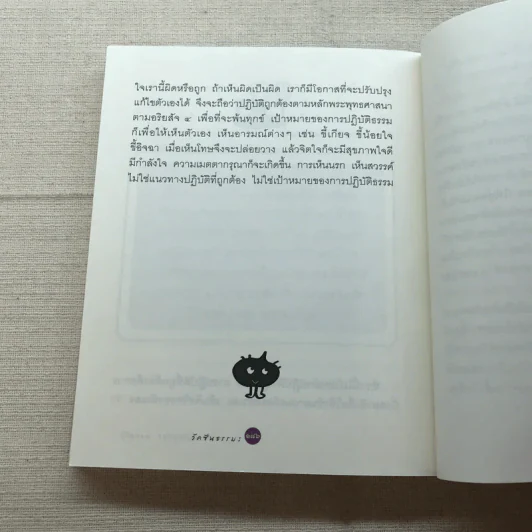 ใจเรานี้ผิดหรือถูก ถ้าเห็นผิดเป็นผิด เราก็มีโอกาสที่จะปรับปรุง
แก้ไขตัวเองได้ จึงจะถือว่าปฏิบัติถูกต้องตามหลักพระพุทธศาสนา
ตามอริยสัจ ๔ เพื่อที่จะพ้นทุกข์ เป้าหมายของการปฏิบัติธรรม
ก็เพื่อให้เห็นตัวเอง เห็นอารมณ์ต่างๆ เช่น ขี้เกียจ ขี้น้อยใจ
ขี้อิจฉา เมื่อเห็นโทษจึงจะปล่อยวาง แล้วจิตใจก็จะมีสุขภาพใจดี
มีกำลังใจ ความเมตตากรุณาก็จะเกิดขึ้น การเห็นนรก เห็นสวรรค์
ไม่ใช่แนวทางปฏิบัติที่ถูกต้อง ไม่ใช่เป้าหมายของการปฏิบัติธรรม